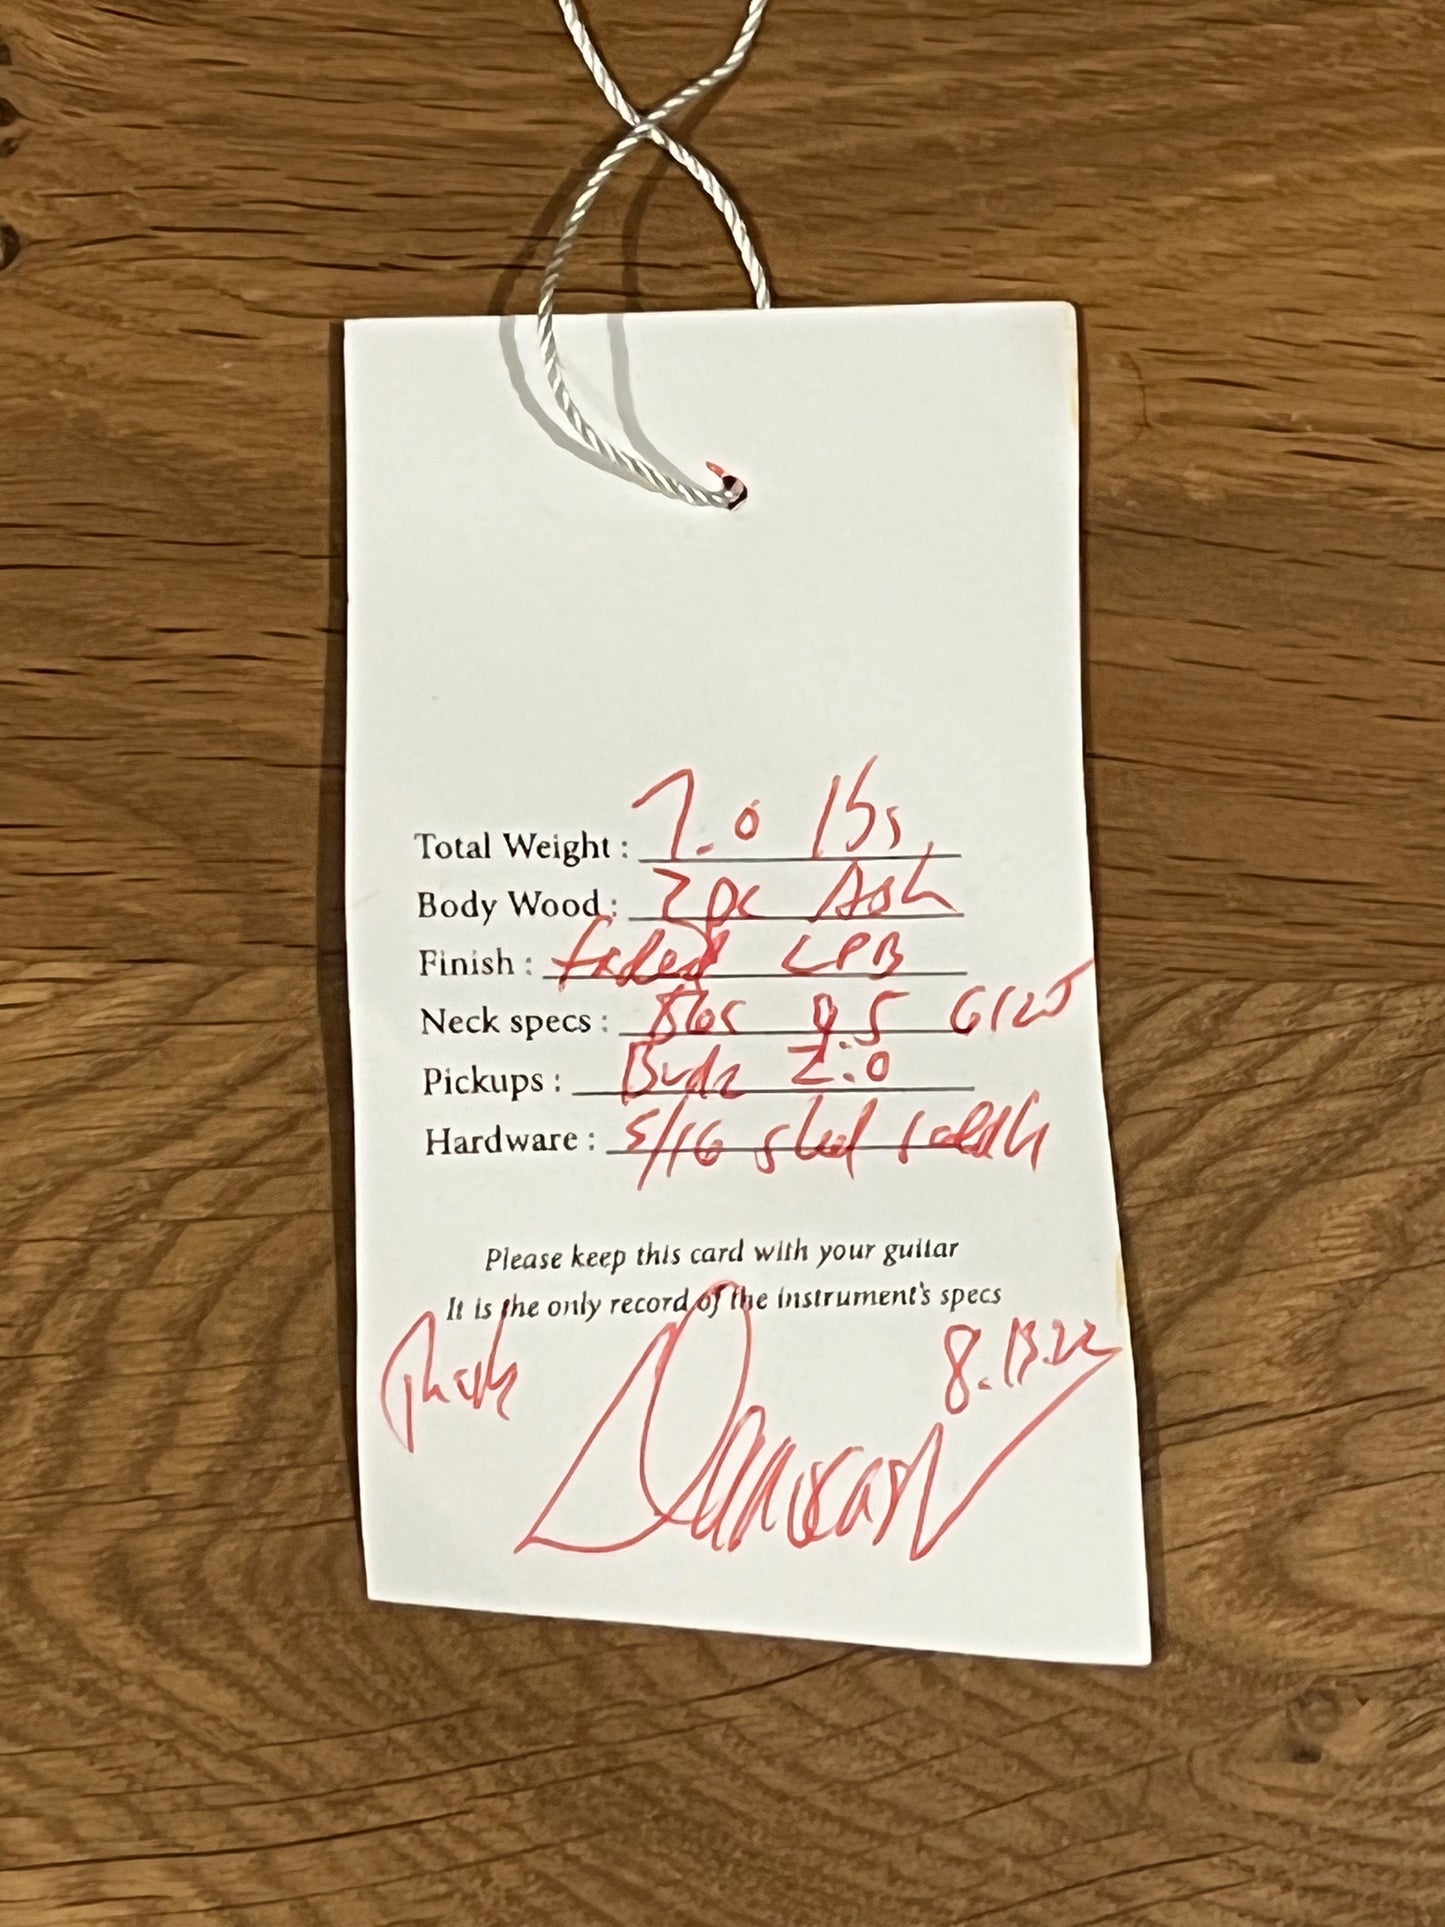 Total Weight : 7.0 lbs.
Body Wood : 2 pc Ash
Finish : faded LPB
Neck specs : 9.5 6125
Pickups : 2.0
Hardware : 5/16 steel saddle
Please keep this card with your guitar
It is the only record of the instrument's specs
8.13.22